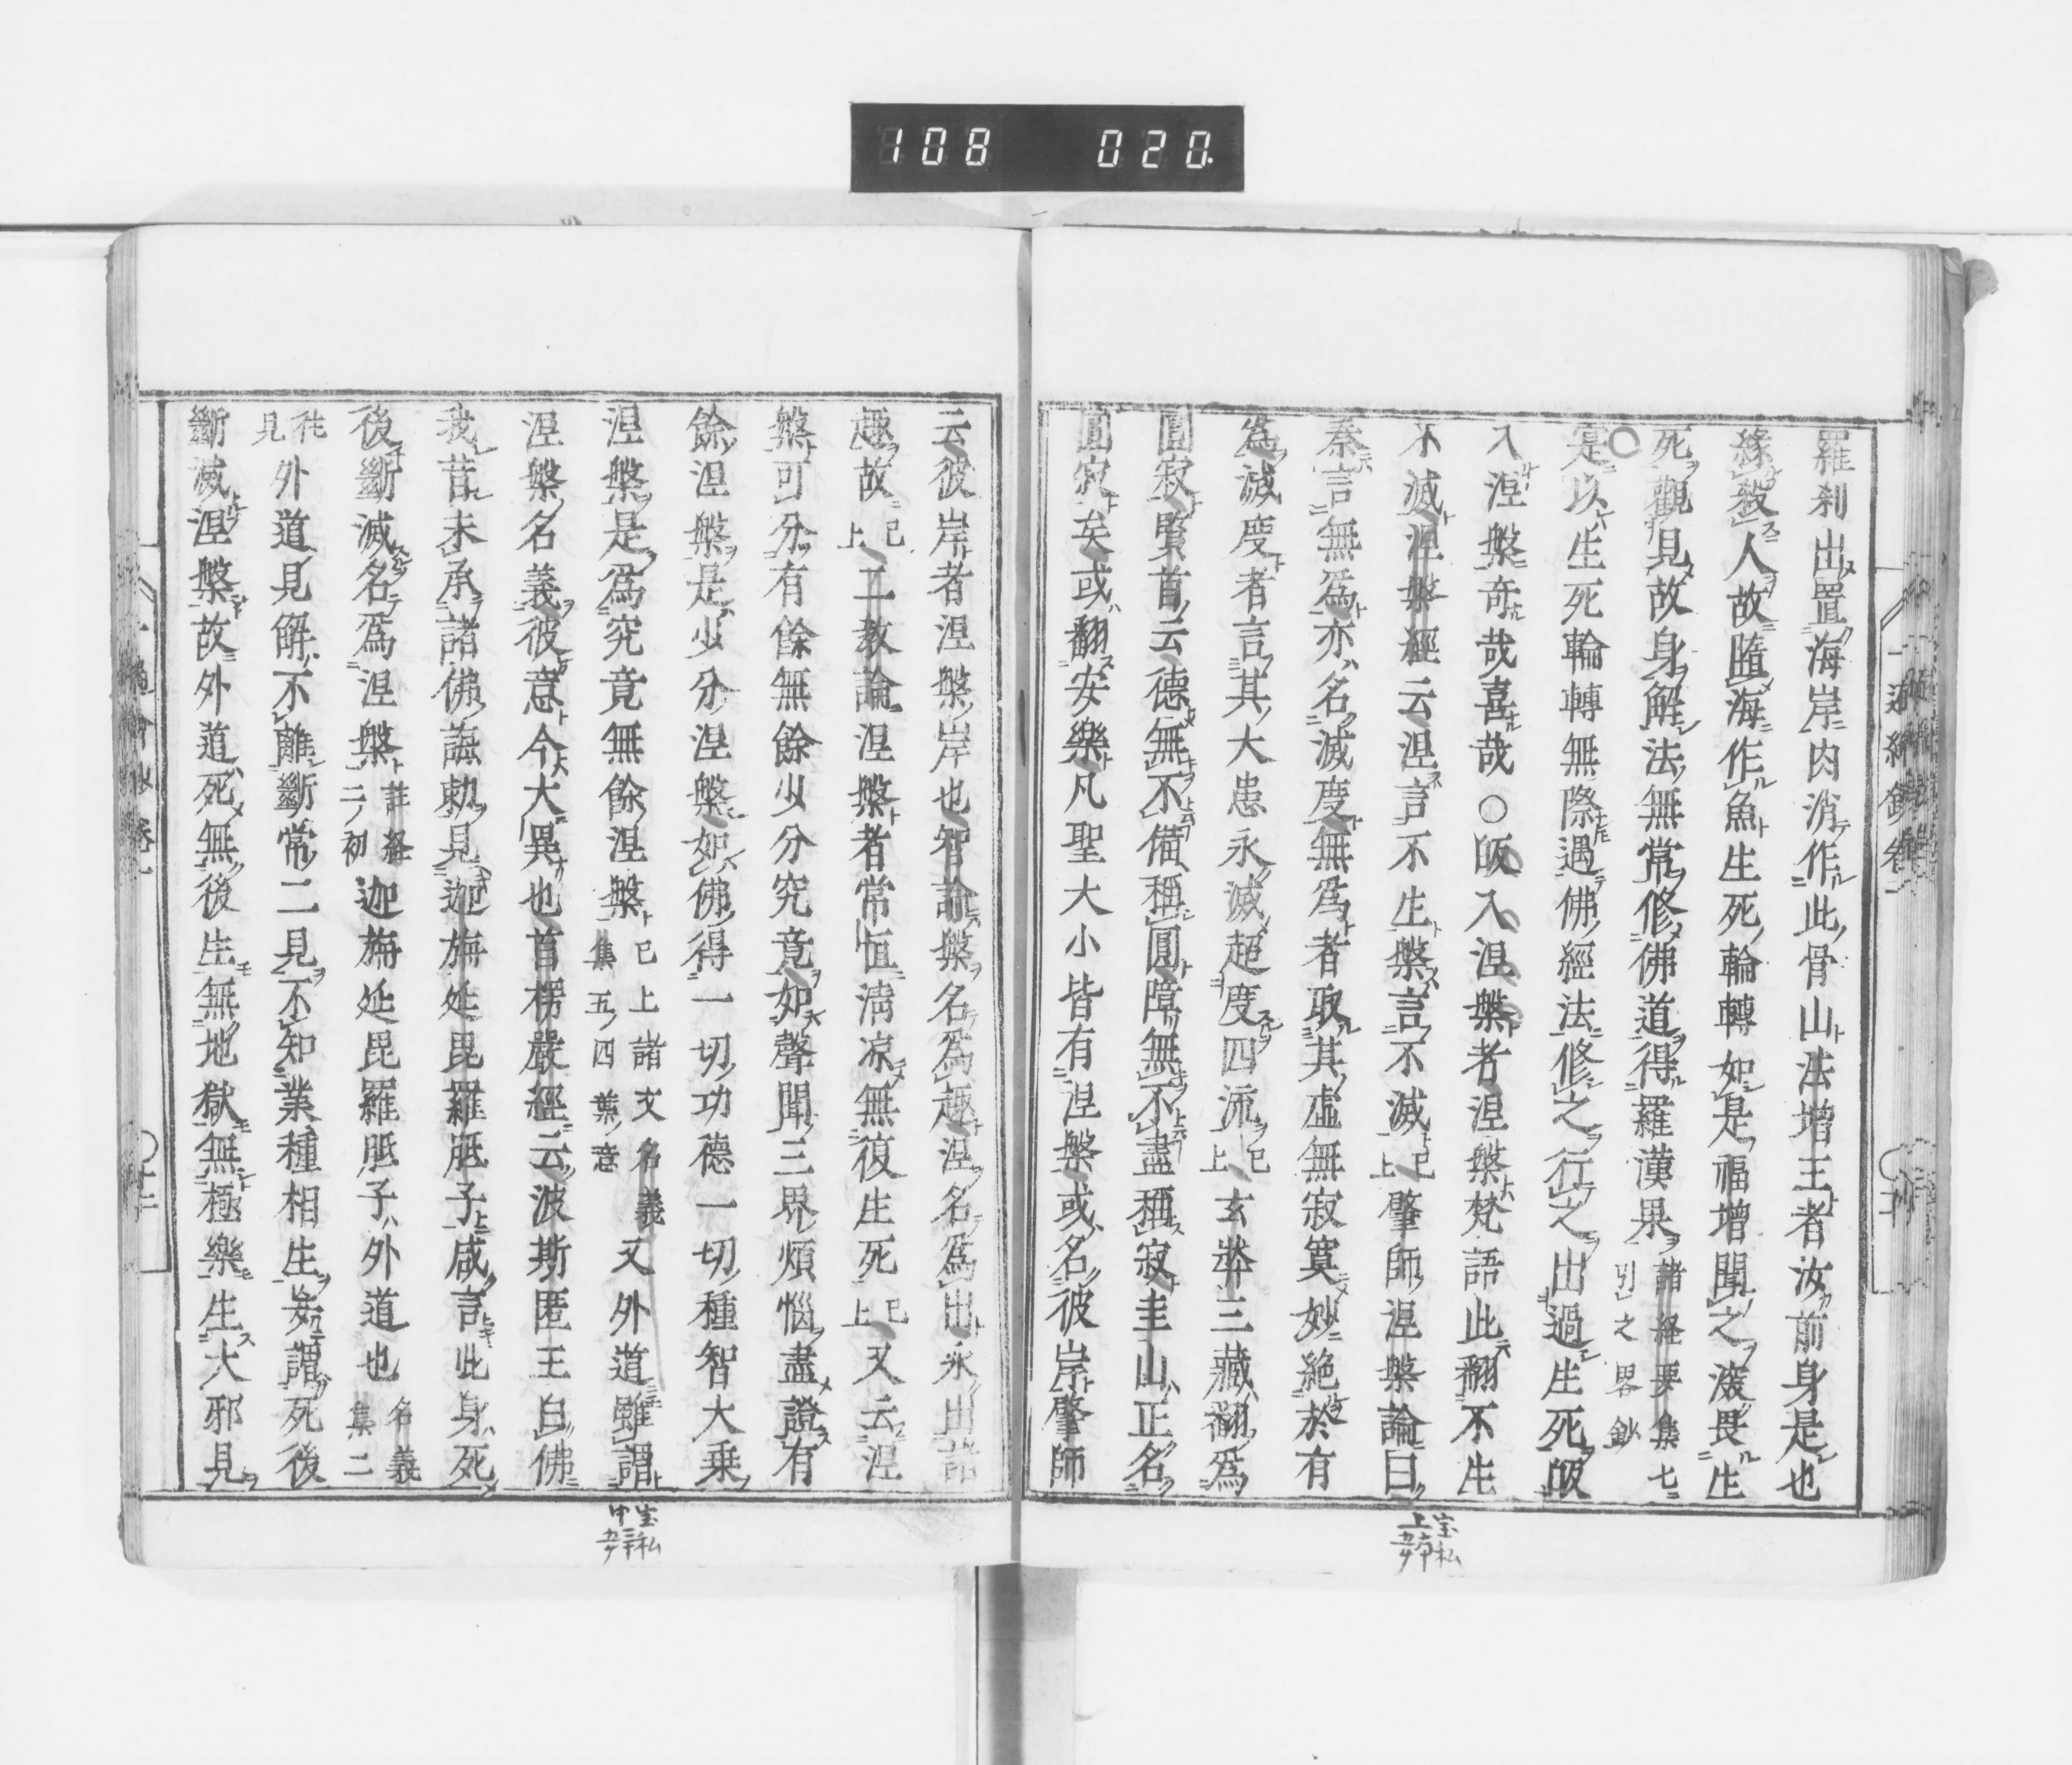 108 020
羅刹出置海岸肉消作此骨山法增王者汝前身是也
緣殺人故墮海作魚生死輪轉如是福增聞之滾畏生
死觀見故身解法無常修佛道得羅漢果諸経要集七引之畧鈔
○
是以生死輪轉無際遇佛經法修之行之出過生死皈
入涅槃奇哉喜哉○皈入涅槃者涅槃梵語此翻不生
不滅涅槃經云涅言不生槃言不滅已上肇師涅槃論曰
秦言無爲亦名滅度無爲者取其虛無寂寞妙絶於有
爲滅度者言其大患永滅超度四流已上玄奘三藏翻爲
圓寂賢首云德無不備稱圓障無不盡稱寂圭山正名
圓寂矣或翻安樂凡聖大小皆有涅槃或名彼岸肇師
云彼岸者涅槃岸也智論槃名爲趣涅名爲出永出諸
趣故已上二教論涅槃者常恒淸凉無復生死已上又云涅
槃可分有餘無餘少分究竟如聲聞三界煩惱盡證有
餘涅槃是少分涅槃如佛得一切功德一切種智大乗
涅槃是爲究竟無餘涅槃已上諸文名義集五四葉意又外道雖謂
涅槃名義彼意今大異也首楞嚴經云波斯匿王白佛
我昔未承諸佛誨勅見迦旃延毘羅胝子咸言此身死
後斷滅名爲涅槃註経二初迦旃延毘羅胝子外道也名義集二
外道見解不離斷常二見不知業種相生妄謂死後
斷滅涅槃故外道死無後生無地獄無極樂生大邪見